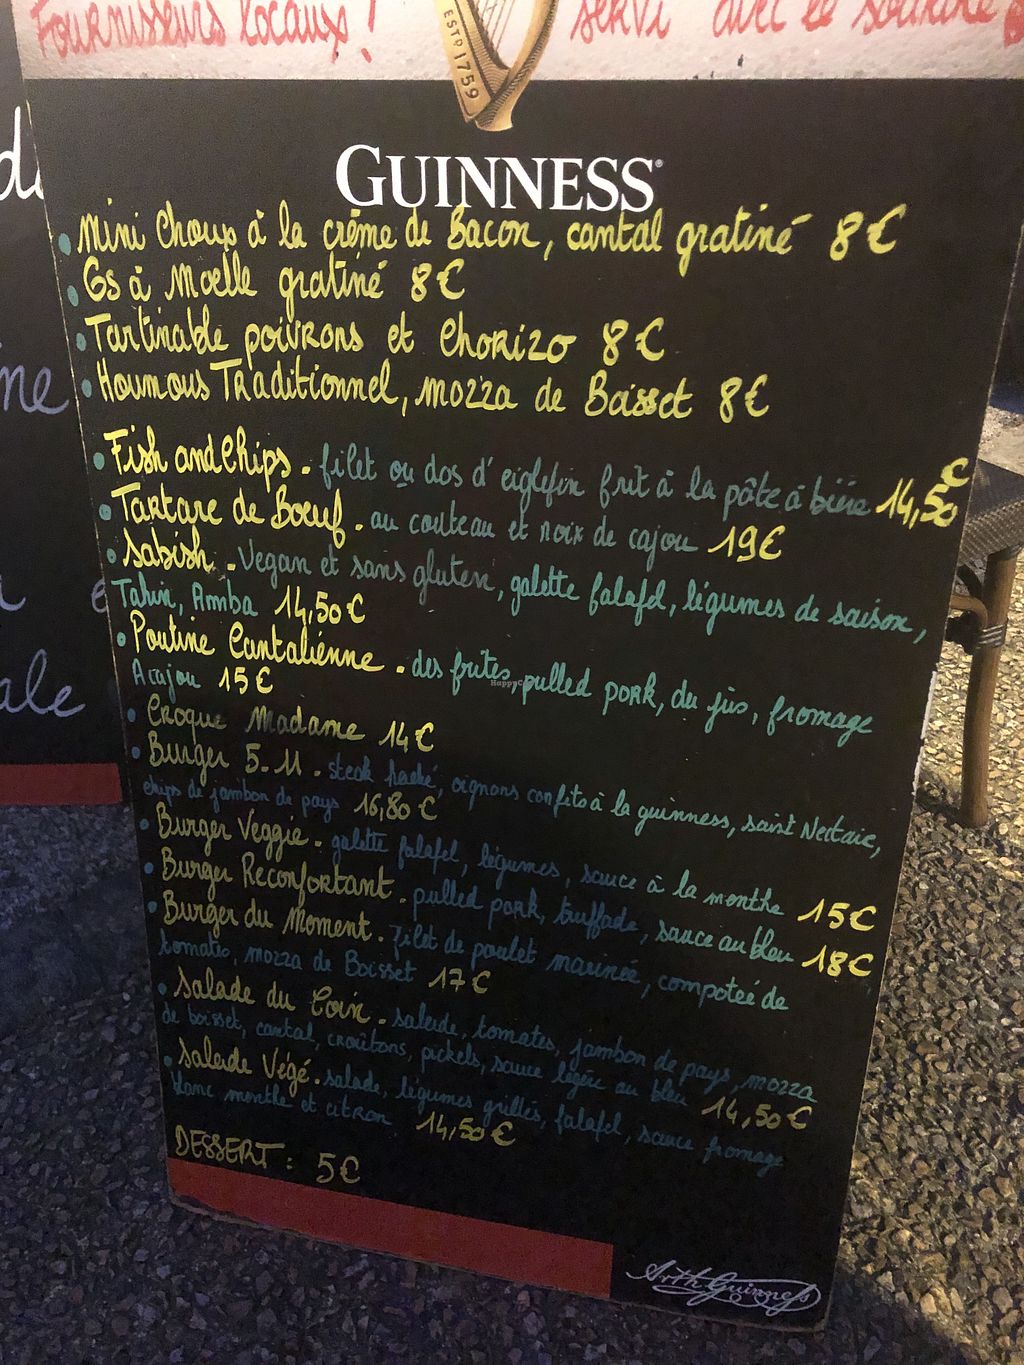 Fournisseurs locaux !
servi avec le sourire
ESTD 1759
GUINNESS
mini choux à la crème de Bacon, cantal gratiné 8€
Os à Moelle gratiné 8€
Tartinable poivrons et Chorizo 8€
Houmous Traditionnel, mozza de Boisset 8€
Fish and Chips . filet ou dos d'eiglefin frit à la pâte à bière 14,50€
Tartare de Boeuf . au couteau et noix de cajou 19€
Sabish . Vegan et sans gluten, galette falafel, légumes de saison,
Tahin, Amba 14,50€
Poutine Cantalienne . des frites, pulled pork, du jus, fromage
Acajou 15€
HappyCow
Croque Madame 14€
Burger 5.11 . steak haché, oignons confits à la guinness, saint Nectaire,
chips de jambon de pays 16,80€
Burger Veggie . galette falafel, légumes, sauce à la menthe 15€
Burger Reconfortant . pulled pork, truffade, sauce au bleu 18€
Burger du Moment . Filet de poulet marinée, compoteé de
tomates, mozza de Boisset 17€
Salade du Coin . salade, tomates, jambon de pays, mozza
de boisset, cantal, croûtons, pickels, sauce légère au bleu 14,50€
Salade Végé . salade, légumes grillés, falafel, sauce fromage
blanc menthe et citron 14,50€
DESSERT : 5€
Arth Guinness